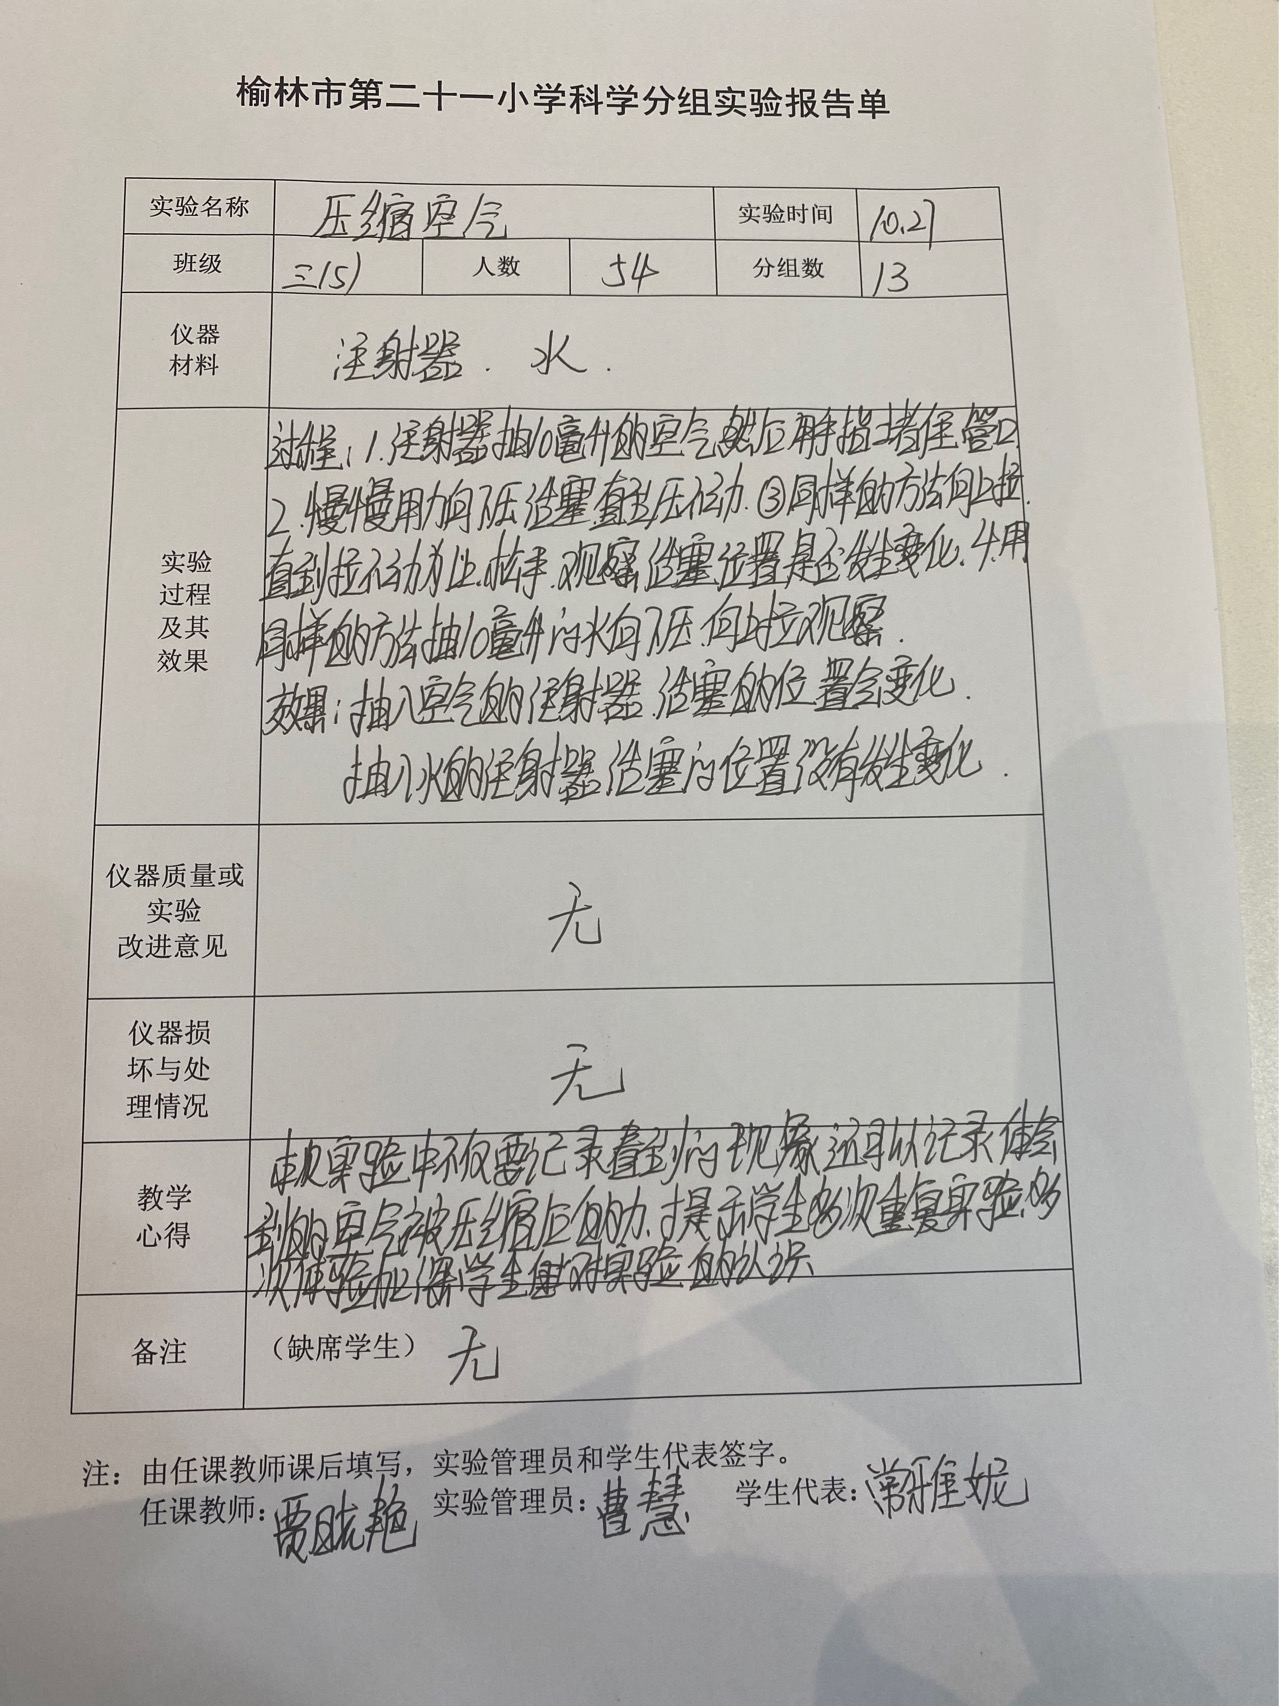 榆林市第二十一小学科学分组实验报告单
实验名称 压缩空气 实验时间 10.27
班级 三(5) 人数 54 分组数 13
仪器
材料
注射器. 水.
实验
过程
及其
效果
过程: 1.注射器抽10毫升的空气然后用手指堵住管口
2.慢慢用力向下压活塞直到压不动.③同样的方法向上拉.
直到拉不动为止.松手.观察活塞位置是否发生变化.4.用
同样的方法抽10毫升的水向下压.向上拉观察.
效果:抽入空气的注射器.活塞的位置会变化.
抽入水的注射器活塞的位置没有发生变化.
仪器质量或
实验
改进意见
无
仪器损
坏与处
理情况
无
教学
心得
本次实验中不仅要记录看到的现象还可以记录体会
到的空气被压缩后的力.提示学生多次重复实验.多
次体验加深学生对实验的认识
备注
(缺席学生) 无
注:由任课教师课后填写,实验管理员和学生代表签字。
任课教师:贾艳 实验管理员:曹慧 学生代表:常雅妮